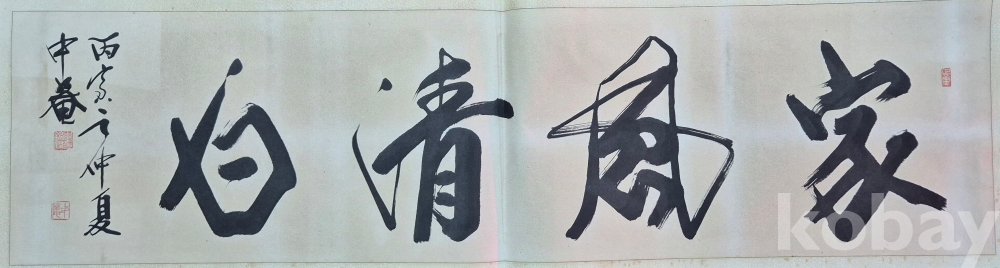 家風清白
丙寅之仲夏
中菴
kobay